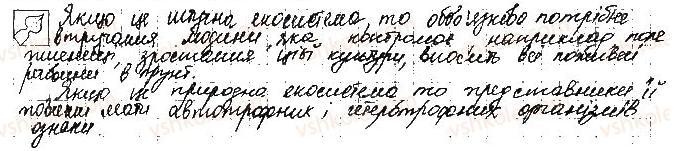 Якщо це штучна екосистема, то обов'язково потрібне
втручання людини, яка контролює наприклад поле
пшениці, зростання цієї культури, вносить всі поживні
речовини в ґрунт.
Якщо це природна екосистема то представники її
повинні мати автотрофних і гетеротрофних організмів
ознаки.